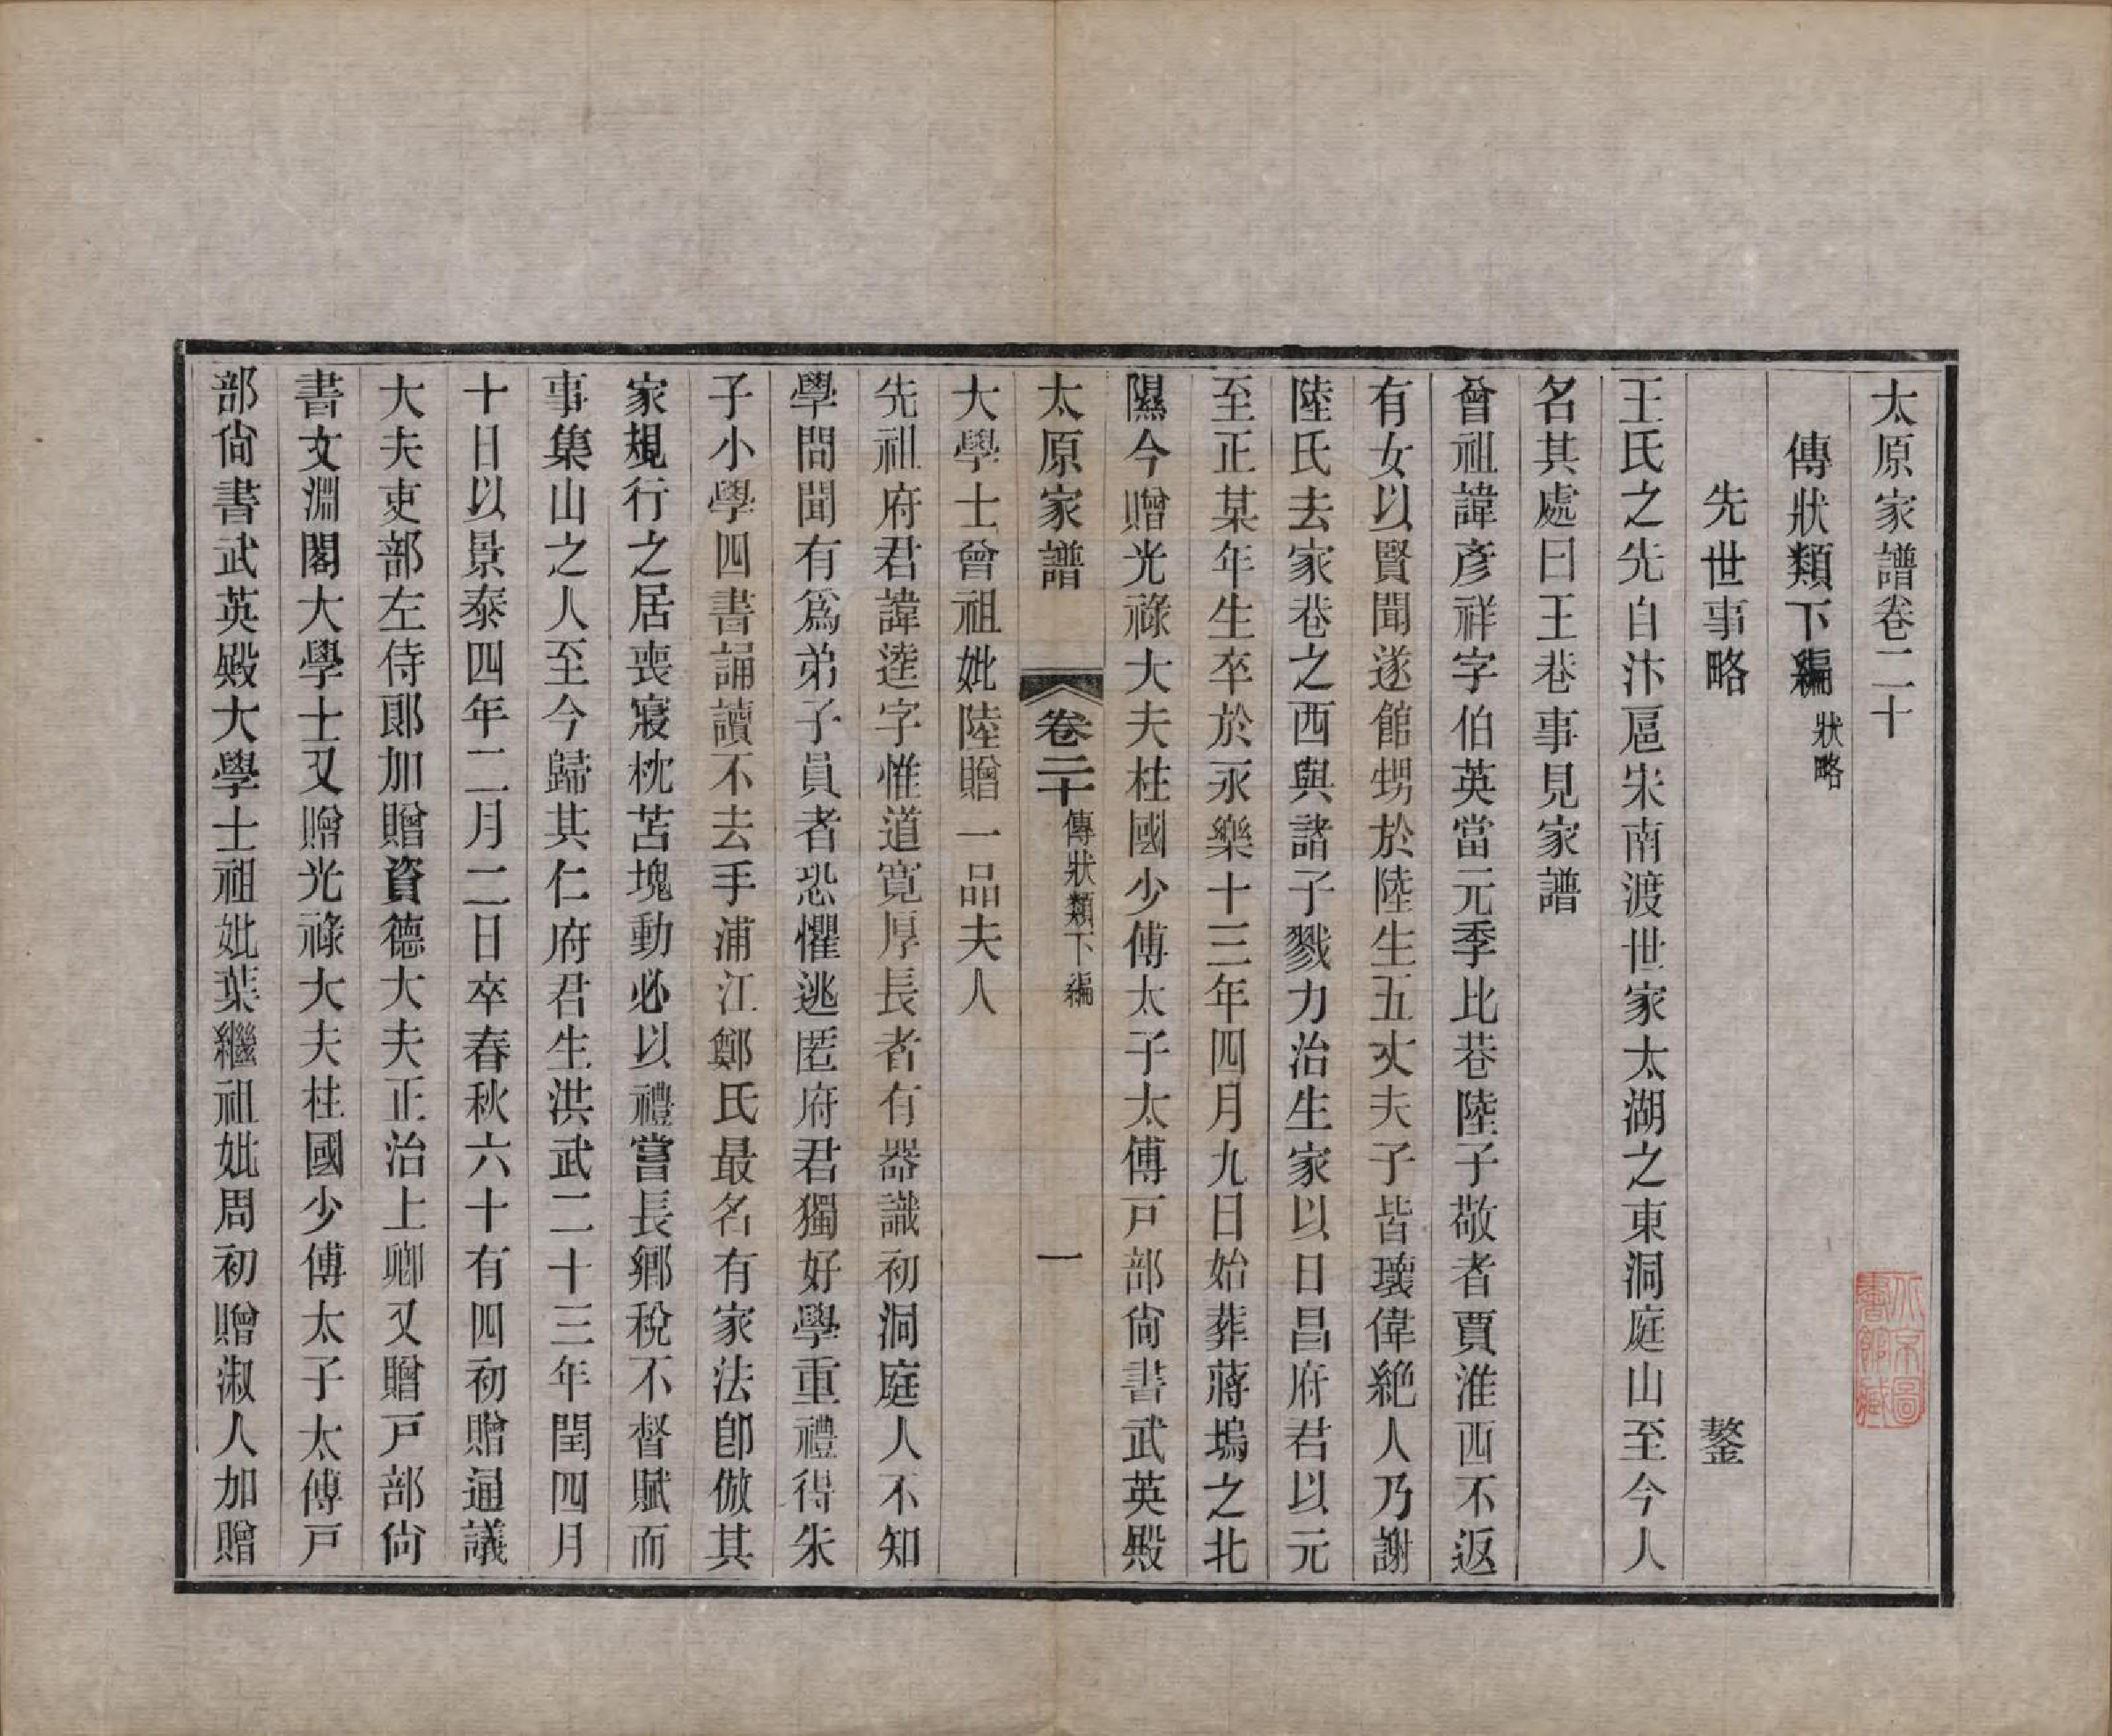 太原家譜卷二十
傳狀類下編狀略
先世事略 鏊
王氏之先自汴扈宋南渡世家太湖之東洞庭山至今人
名其處曰王巷事見家譜
曾祖諱彥祥字伯英當元季比巷陸子敬者賈淮西不返
有女以賢聞遂館甥於陸生五丈夫子皆瓌偉絶人乃謝
陸氏去家巷之西與諸子戮力治生家以日昌府君以元
至正某年生卒於永樂十三年四月九日始葬蔣塢之北
隰今贈光祿大夫柱國少傅太子太傅戸部尙書武英殿
太原家譜 卷二十 傳狀類下編 一
大學士曾祖妣陸贈一品夫人
先祖府君諱逵字惟道寬厚長者有器識初洞庭人不知
學問聞有爲弟子員者恐懼逃匿府君獨好學重禮得朱
子小學四書誦讀不去手浦江鄭氏最名有家法卽倣其
家規行之居喪寢枕苫塊動必以禮嘗長鄕稅不督賦而
事集山之人至今歸其仁府君生洪武二十三年閏四月
十日以景泰四年二月二日卒春秋六十有四初贈通議
大夫吏部左侍郞加贈資德大夫正治上卿又贈戸部尙
書文淵閣大學士又贈光祿大夫柱國少傅太子太傅戸
部尙書武英殿大學士祖妣葉繼祖妣周初贈淑人加贈
北京圖
書館藏